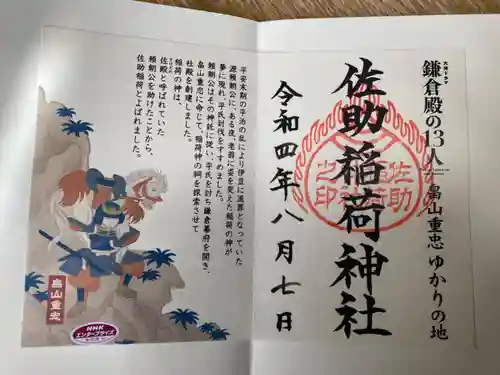 大河ドラマ
鎌倉殿の13人 畠山重忠 ゆかりの地
佐助稲荷神社
佐助稲荷神社之印
令和四年八月七日
平安末期の平治の乱により伊豆に流罪となっていた
源頼朝公に、ある夜、老翁に姿を変えた稲荷の神が
夢に現れ、平氏討伐をすすめました。
頼朝公はその神託に従い、平氏を討ち鎌倉幕府を開き、
畠山重忠に命じて、稲荷神の祠を探索させて
社殿を創建しました。
稲荷の神は、
佐殿と呼ばれていた
頼朝公を助けたことから、
佐助稲荷とよばれました。
畠山重忠
NHK
エンタープライズ